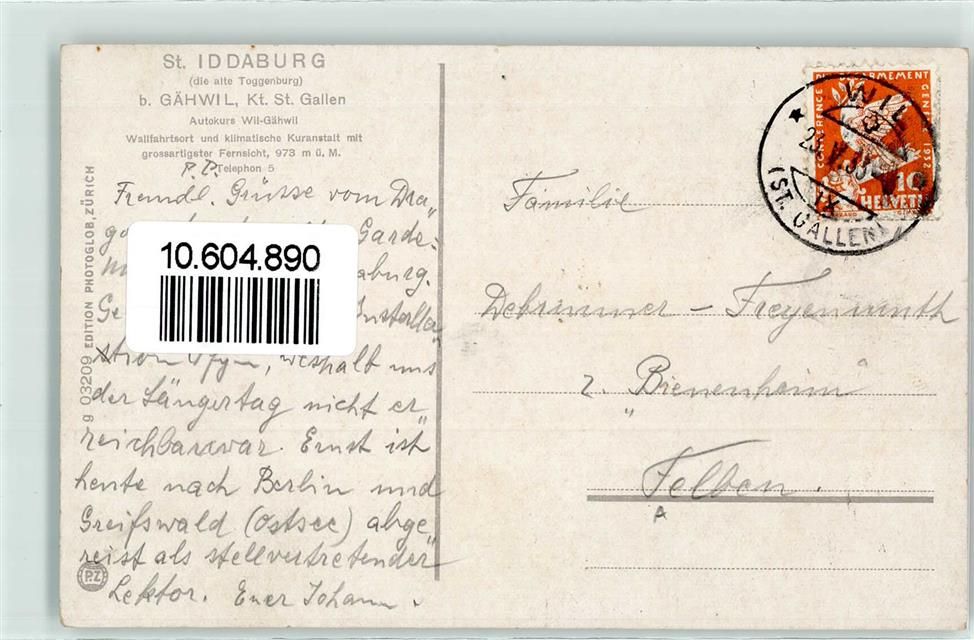 St. IDDABURG
(die alte Toggenburg)
b. GÄHWIL, Kt. St. Gallen
Autokurs Wil-Gähwil
Wallfahrtsort und klimatische Kuranstalt mit
grossartigster Fernsicht, 973 m ü. M.
Telephon 5
P. P.
Freundl. Grüsse vom Dra„
Garde„
aburg.
Ge Installa„
stion Pfyn, weshalt uns
der Sängertag nicht er„
reichbar war. Ernst ist
heute nach Berlin und
Greifswald (Ostsee) abge„
reist als stellvertretender
Lektor. Euer Johann.
10.604.890
g 03209 EDITION PHOTOGLOB, ZÜRICH
PZ
CONFERENCE DU DESARMEMENT GENEVE 1932
10
HELVETIA
WIL
(ST. GALLEN)
Familie
Debrunner - Freyenmuth
z. Bienenheim
Felben.